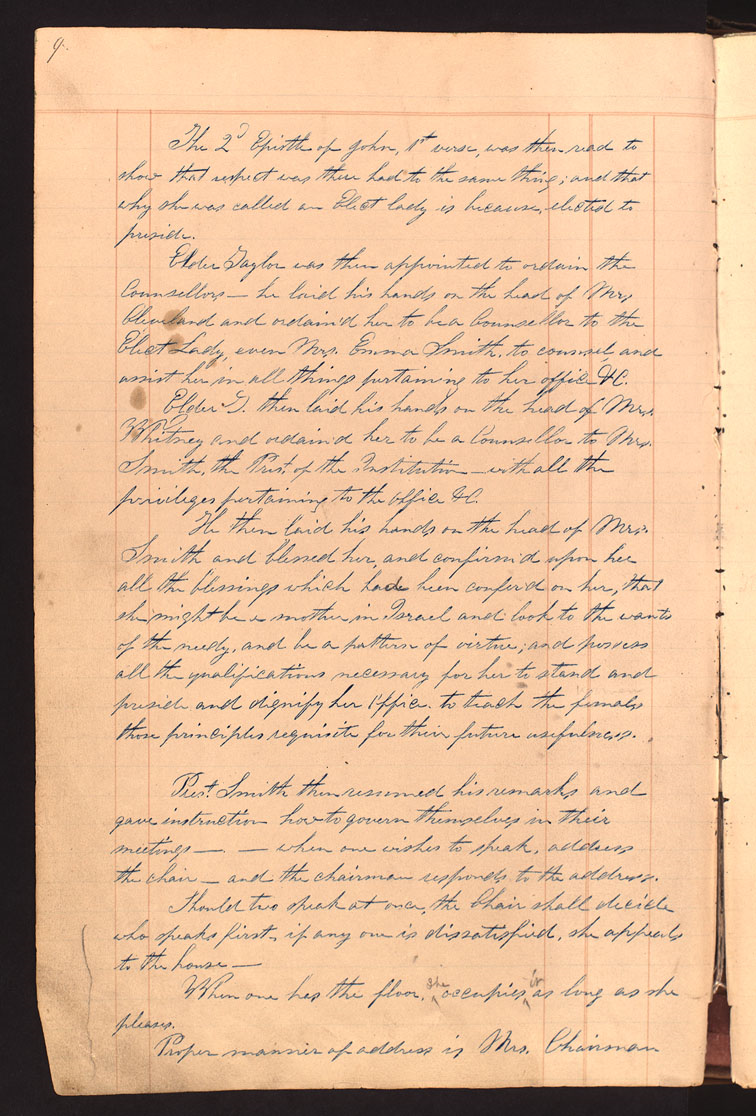 9.
The 2d Epistle of John, 1st verse, was then read to
show that respect was there had to the same thing; and that
why she was called an Elect lady is because, elected to
preside.
Elder Taylor was then appointed to ordain the
Counsellors— he laid his hands on the head of Mrs
Cleveland and ordain'd her to be a Counsellor to the
Elect Lady, even Mrs. Emma Smith, to counsel, and
assist her in all things pertaining to her office &C.
Elder T. then laid his hands on the head of Mrs.
Whitney and ordain'd her to be a Counsellor to Mrs.
Smith, the Prest. of the Institution— with all the
privileges pertaining to the office &C.
He then laid his hands on the head of Mrs.
Smith and blessed her, and confirm'd upon her
all the blessings which had been confer'd on her, that
she might be a mother in Israel and look to the wants
of the needy, and be a pattern of virtue; and possess
all the qualifications necessary for her to stand and
preside and dignify her Office. to teach the females
those principles requisite for their future usefulness.
Prest. Smith then resumed his remarks and
gave instruction how to govern themselves in their
meetings—. — when one wishes to speak, address
the chair— and the chairman responds to the address.
Should two speak at once, the Chair shall decide
who speaks first, if any one is dissatisfied, she appeals
to the house—
When one has the floor, she occupies it as long as she
pleases.
Proper manner of address is Mrs. Chairman